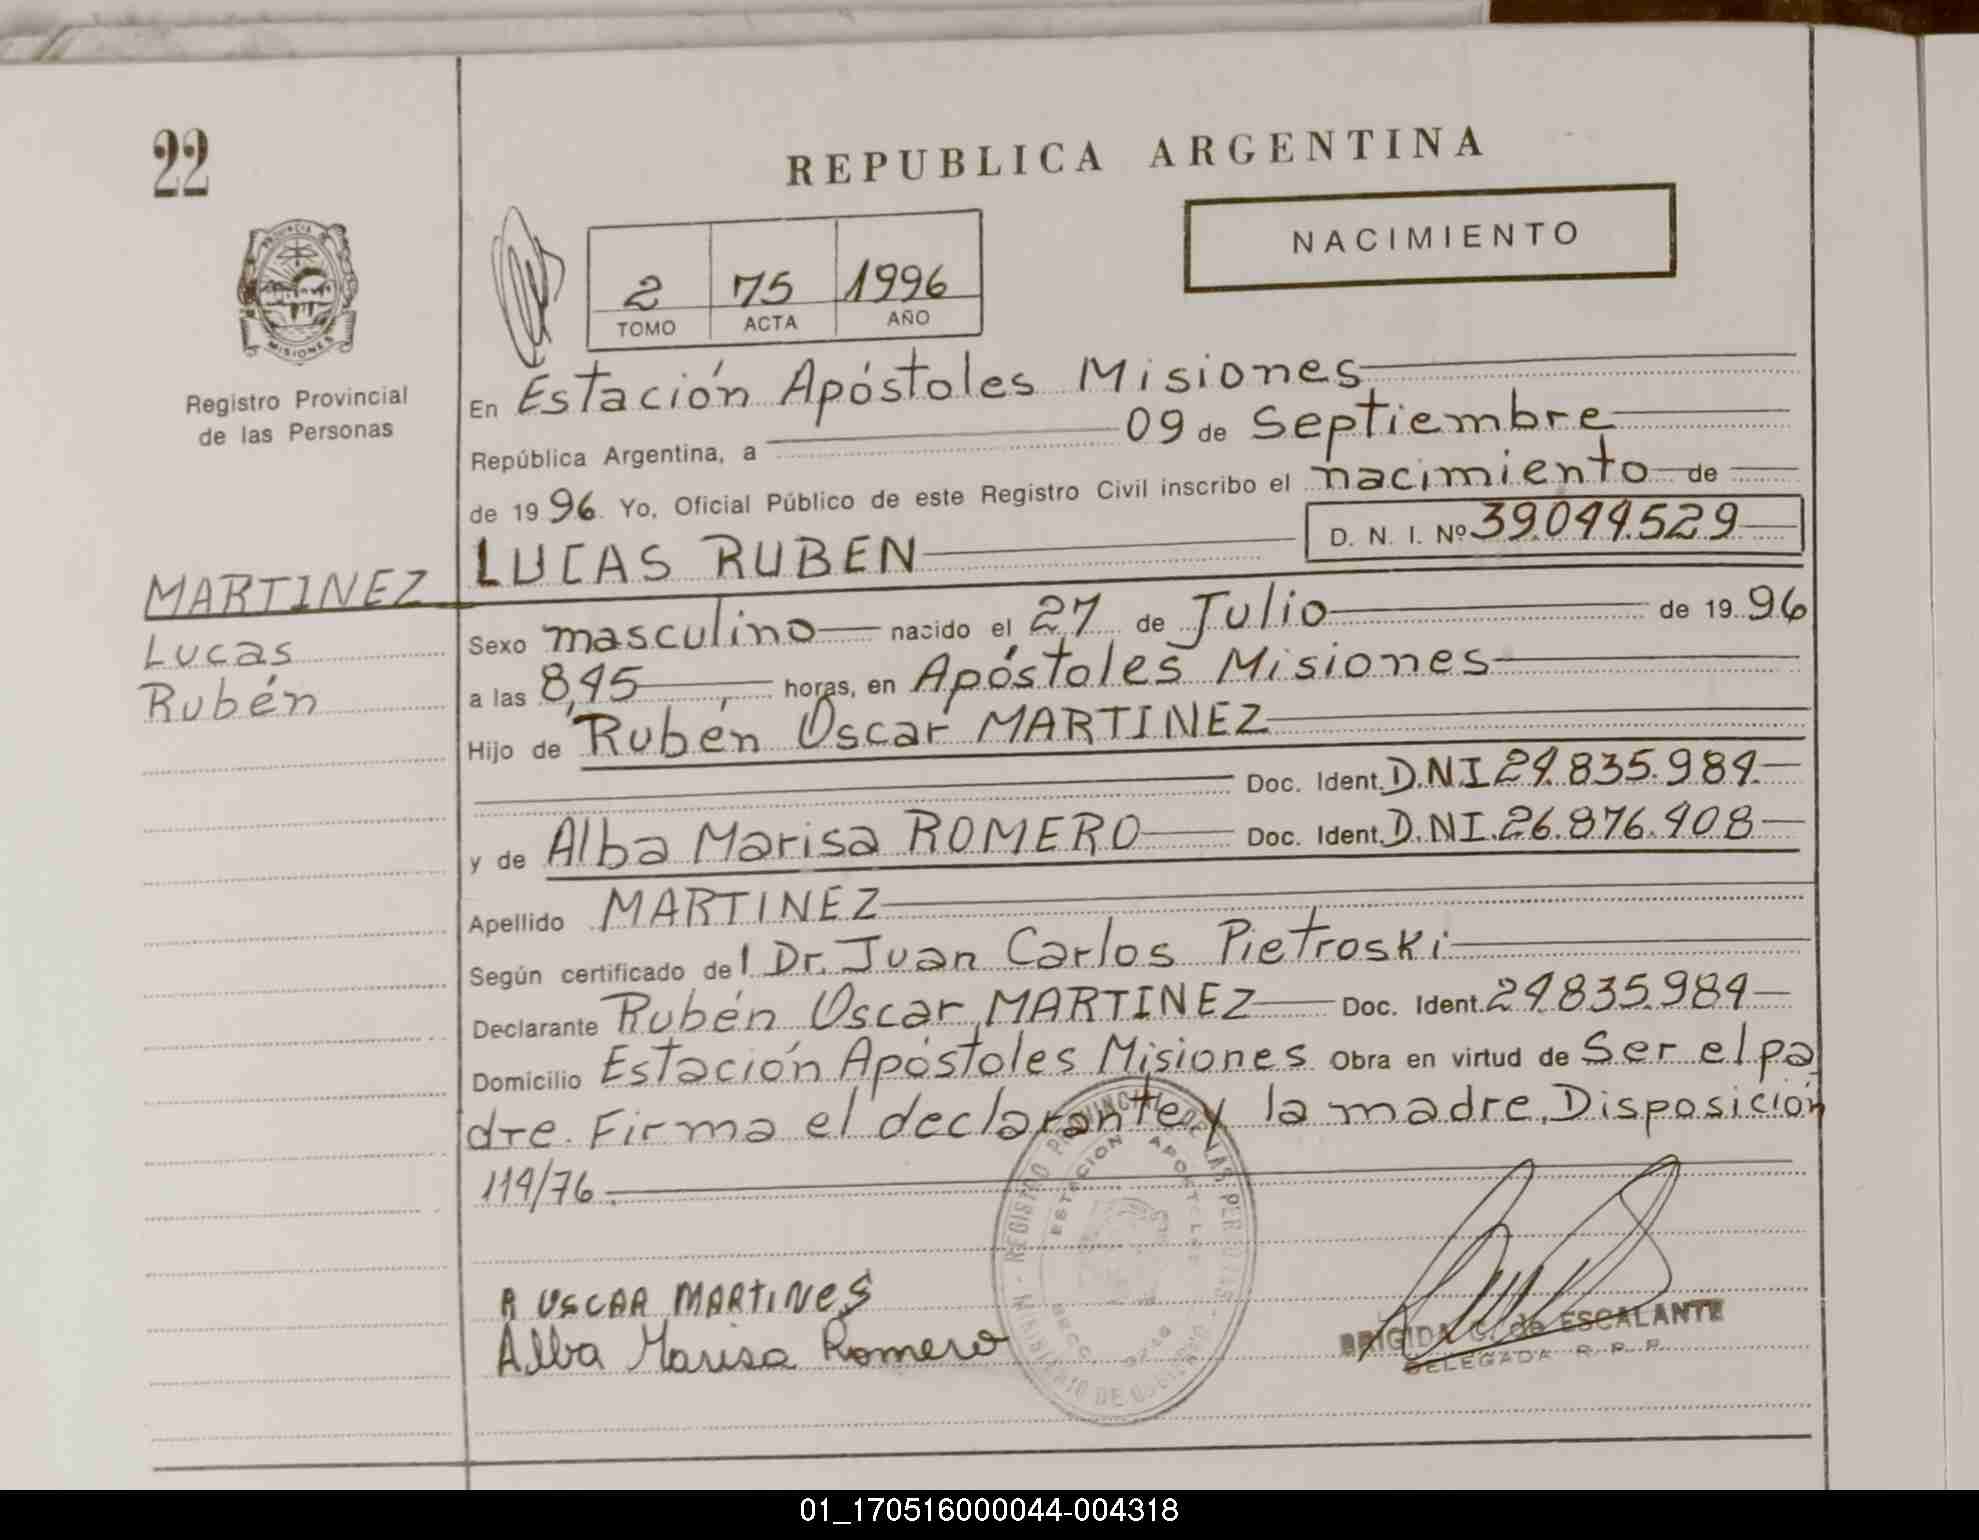 22
REPUBLICA ARGENTINA
NACIMIENTO
2 75 1996
TOMO ACTA AÑO
PROVINCIA
MISIONES
Registro Provincial
de las Personas
En Estación Apóstoles Misiones
República Argentina, a 09 de Septiembre
de 1996. Yo, Oficial Público de este Registro Civil inscribo el nacimiento de
LUCAS RUBEN D. N. I. Nº 39.044.529
MARTINEZ
Lucas
Rubén
Sexo masculino nacido el 27 de Julio de 1996
a las 8,45 horas, en Apóstoles Misiones
Hijo de Rubén Oscar MARTINEZ
Doc. Ident. D.NI 24.835.984.
y de Alba Marisa ROMERO Doc. Ident. D.NI. 26.876.408
Apellido MARTINEZ
Según certificado del Dr. Juan Carlos Pietroski
Declarante Rubén Oscar MARTINEZ Doc. Ident. 24.835.984
Domicilio Estación Apóstoles Misiones Obra en virtud de Ser el pa
dre. Firma el declarante y la madre. Disposición
114/76.
REGISTRO PROVINCIAL DE LAS PERSONAS
ESTACION APOSTOLES
MINISTERIO DE GOBIERNO
R OSCAR MARTINES
Alba Marisa Romero
BRIGIDA C. de ESCALANTE
DELEGADA R. P. P.
01_170516000044-004318